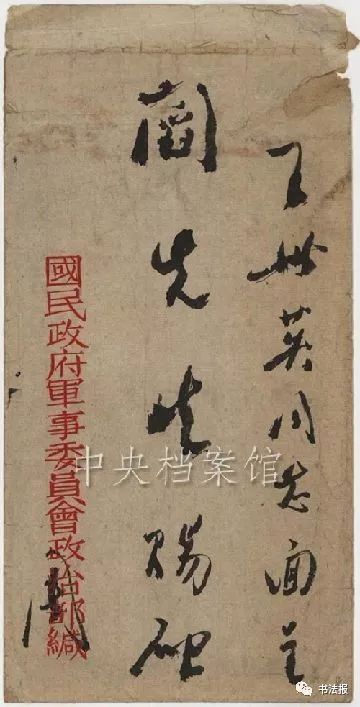 王世英同志面呈
閻先生賜啟
國民政府軍事委員會政治部緘
周
中央档案馆
书法报